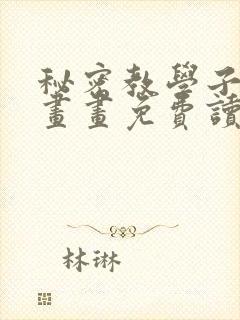 秘密教學子
畫畫免費讀
林琳